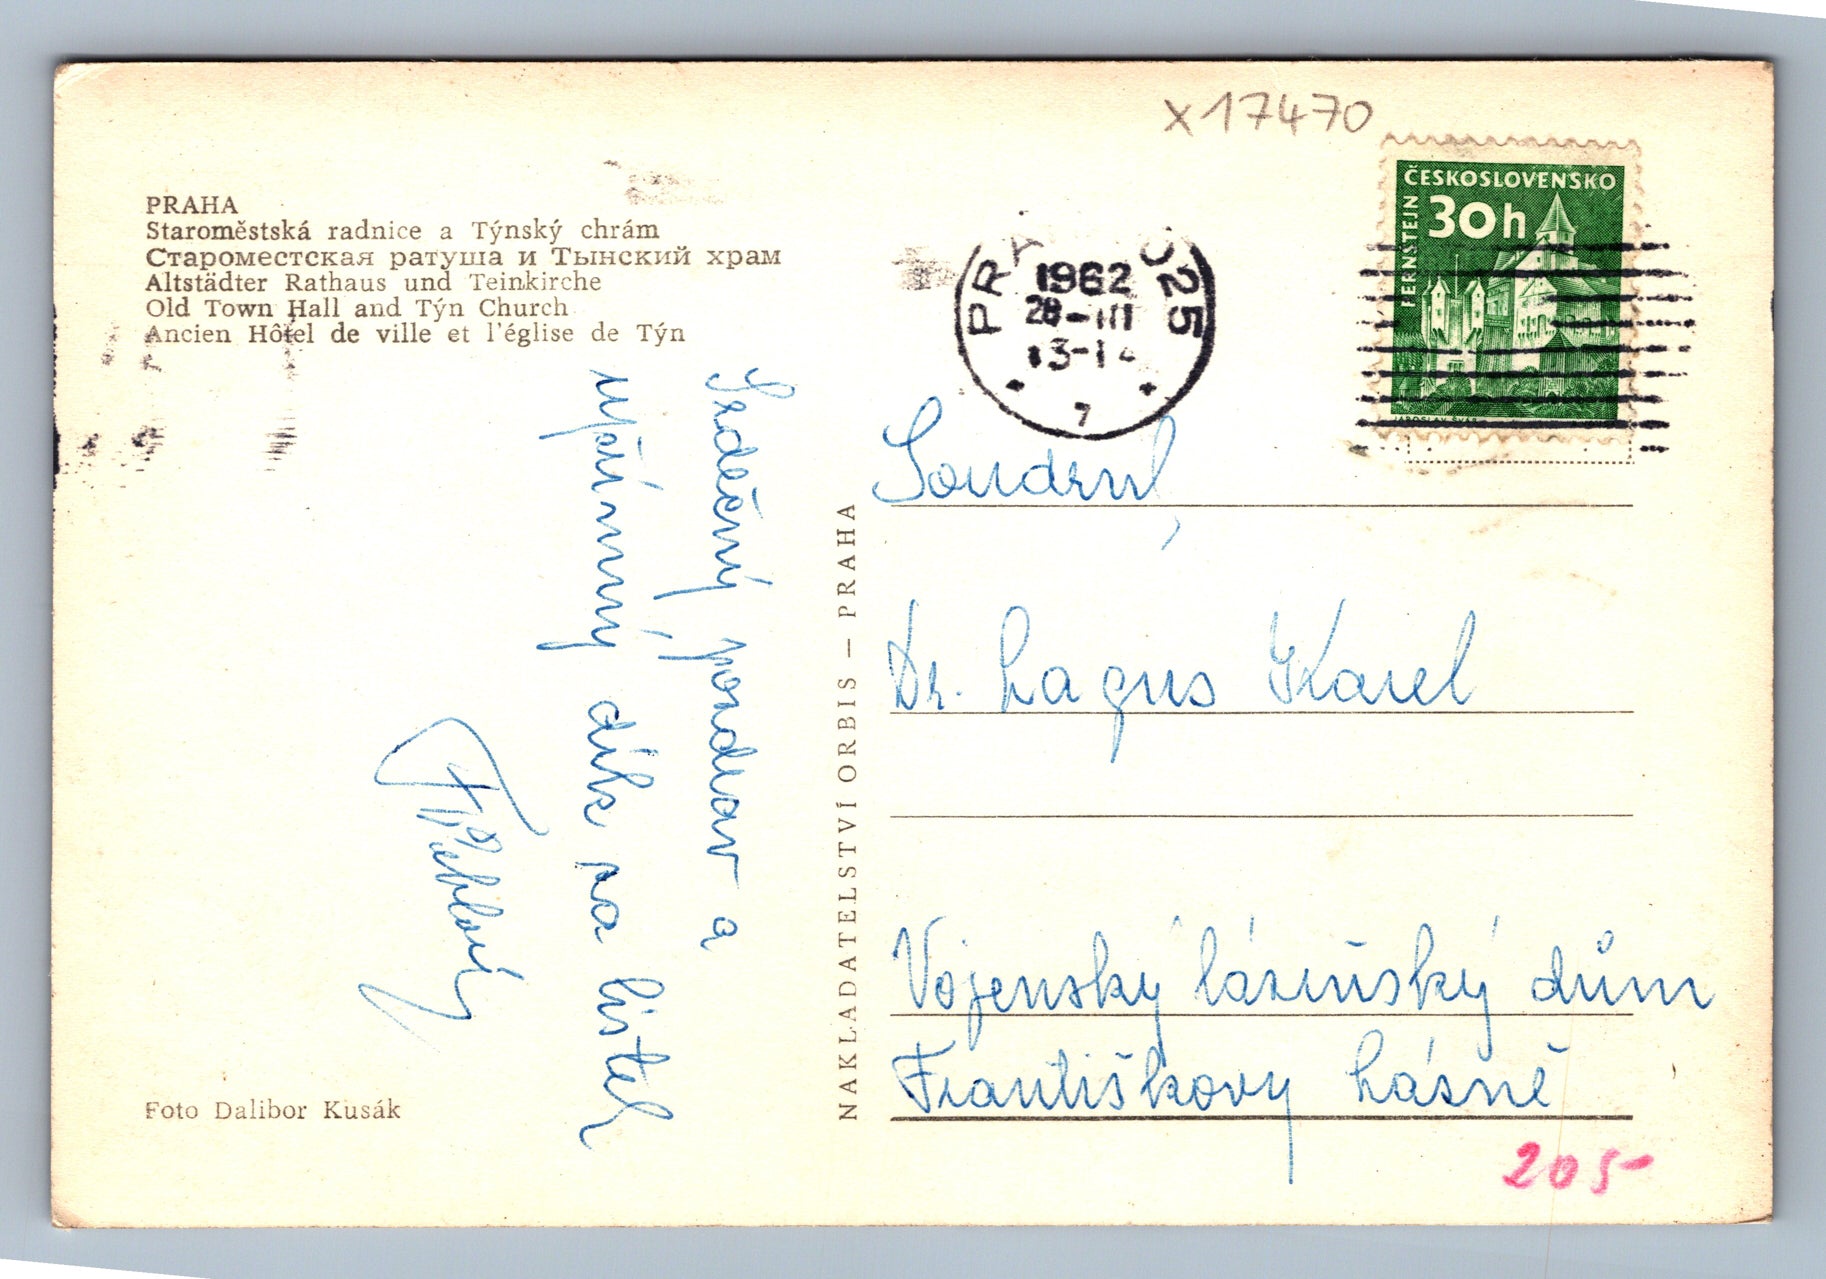 x17470
PRAHA
Staroměstská radnice a Týnský chrám
Староместская ратуша и Тынский храм
Altstädter Rathaus und Teinkirche
Old Town Hall and Týn Church
Ancien Hôtel de ville et l'église de Týn
ČESKOSLOVENSKO
30h
PERNŠTEJN
JAROSLAV ŠVÁB
PRA 025
1962
28-III
13-14
7
Srdečný pozdrav a
upřímný dík za lístek
NAKLADATELSTVÍ ORBIS – PRAHA
Soudruh
Dr. Lagus Karel
Vojenský lázeňský dům
Františkovy Lázně
Foto Dalibor Kusák
205-